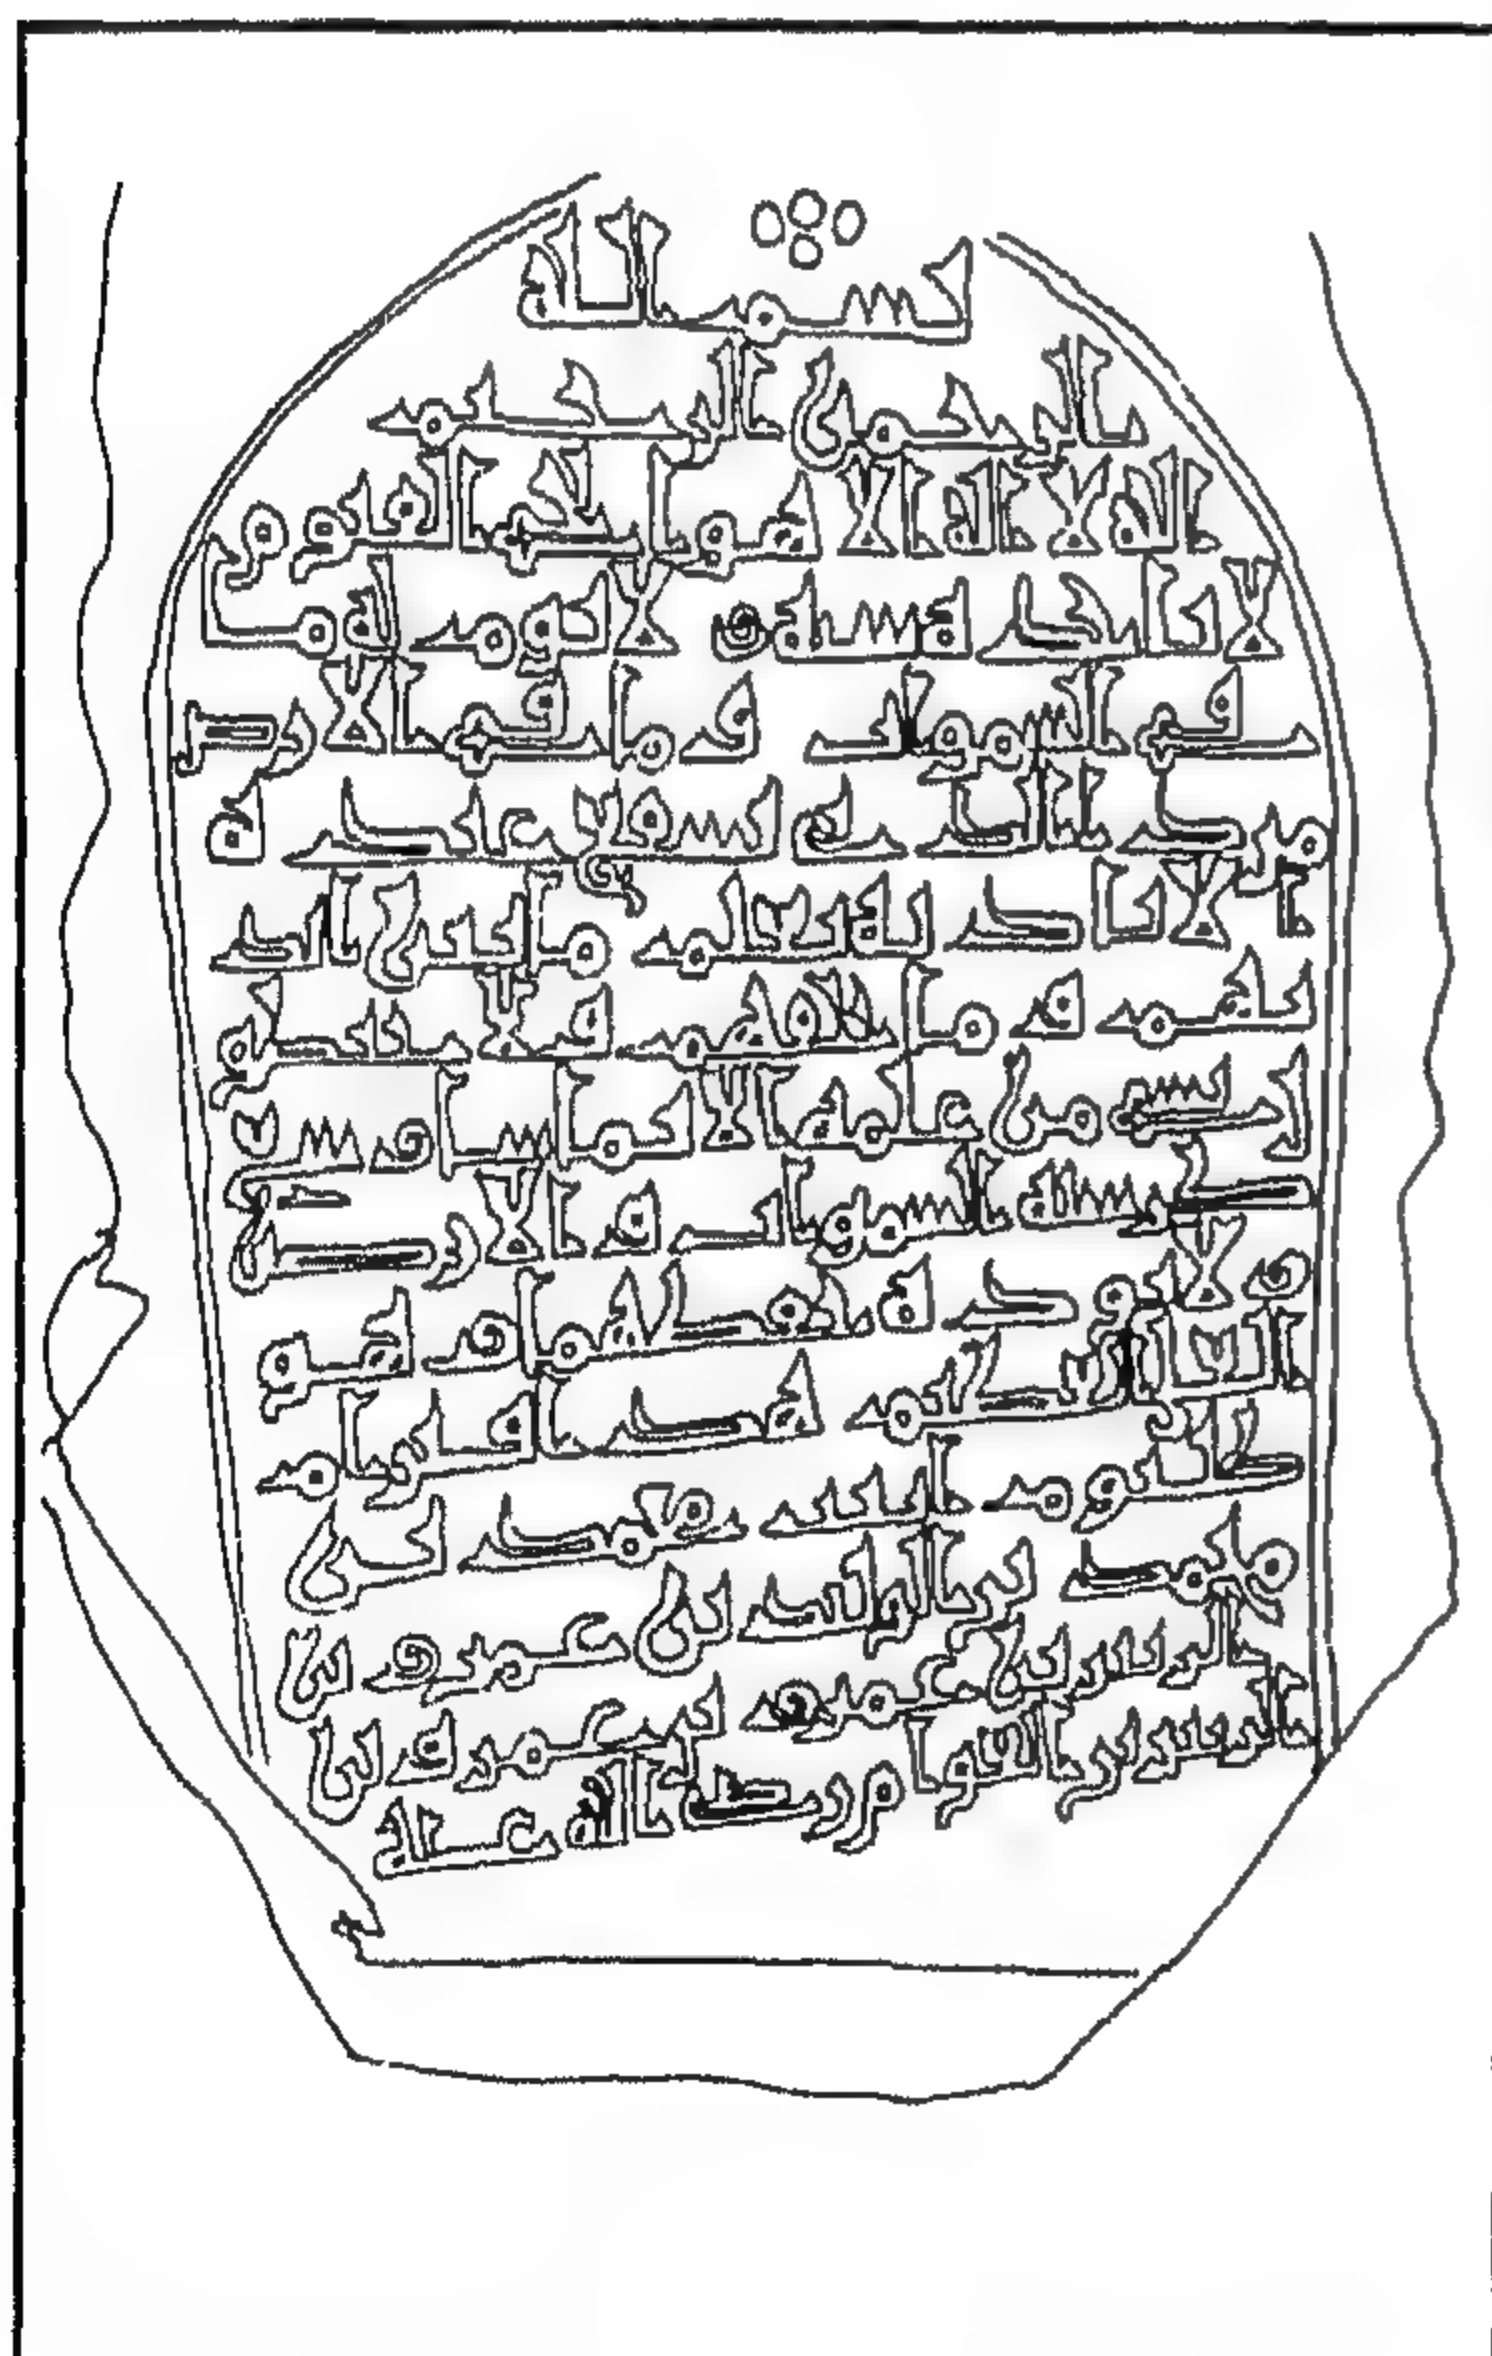 بسم الله
الرحمن الرحيم
الله لا اله الا هو الحي القيوم
لا تاخذه سنة و لا نوم له ما
في السموت و ما في الارض
من ذا الذي يشفع عنده
ا لا باذنه يعلم ما بين ايد
يهم و ما خلفهم و لا يحيطو
ن بشي من علمه الا بما شا وسع
كرسيه السموات و الارض
و لا يوده حفظهما و هو
العلي العظيم هذا قبر ام
كلثوم ابنت محمد بن
محمد بن الوليد بن عمرو بن
الزبير بن عمرو بن عمرو بن
الزبير بن العوام رضي الله عنه